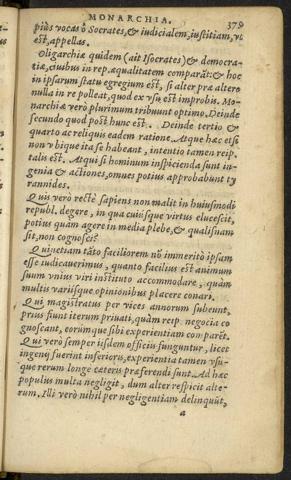 MONARCHIA. 379
piùs vocas ô Socrates, & iudicialem, iustitiam, vt
est, appellas.
Oligarchiæ quidem (ait Isocrates) & democra-
tiæ, ciuibus in rep. æqualitatem comparãt: & hoc
in ipsarum statu egregium est, si alter præ altero
nulla in re polleat, quod ex vsu est improbis. Mo-
narchiæ verò plurimum tribuunt optimo. Deinde
secundo quod post hunc est. Deinde tertio &
quarto ac reliquis eadem ratione. Atque hæc etsi
non vbique ita se habeant, intentio tamen reip.
talis est. Atqui si hominum inspicienda sunt in-
genia & actiones, omnes potius approbabunt ty
rannides.
Quis verò rectè sapiens non malit in huiusmodi
republ. degere, in qua cuiusque virtus elucescit,
potius quàm agere in media plebe, & qualisnam
sit, non cognosci?
Quinetiam tãto faciliorem nũ immeritò ipsam
esse iudicauerimus, quanto facilius est animum
suum vnius viri instituto accommodare, quàm
multis variisque opinionibus placere conari.
Qui magistratus per vices annorum subeunt,
prius fiunt iterum priuati, quàm reip. negocia co
gnoscant, eorúmque sibi experientiam comparẽt.
Qui verò semper iisdem officiis funguntur, licet
ingenij fuerint inferioris, experientia tamen vsu-
que rerum longè cæteris præferendi sunt. Ad hæc
populus multa negligit, dum alter respicit alte-
rum. Illi verò nihil per negligentiam delinquũt,
a